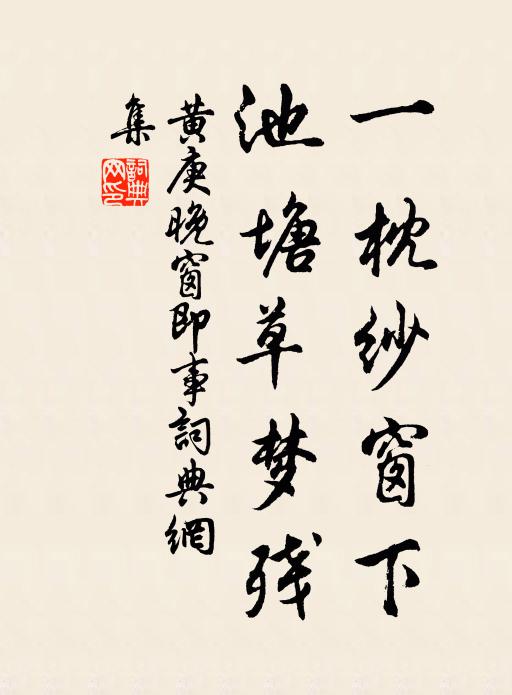 一枕纱窗下
池塘草梦残
黄庚晚窗即事詞典網
集
詞典網印